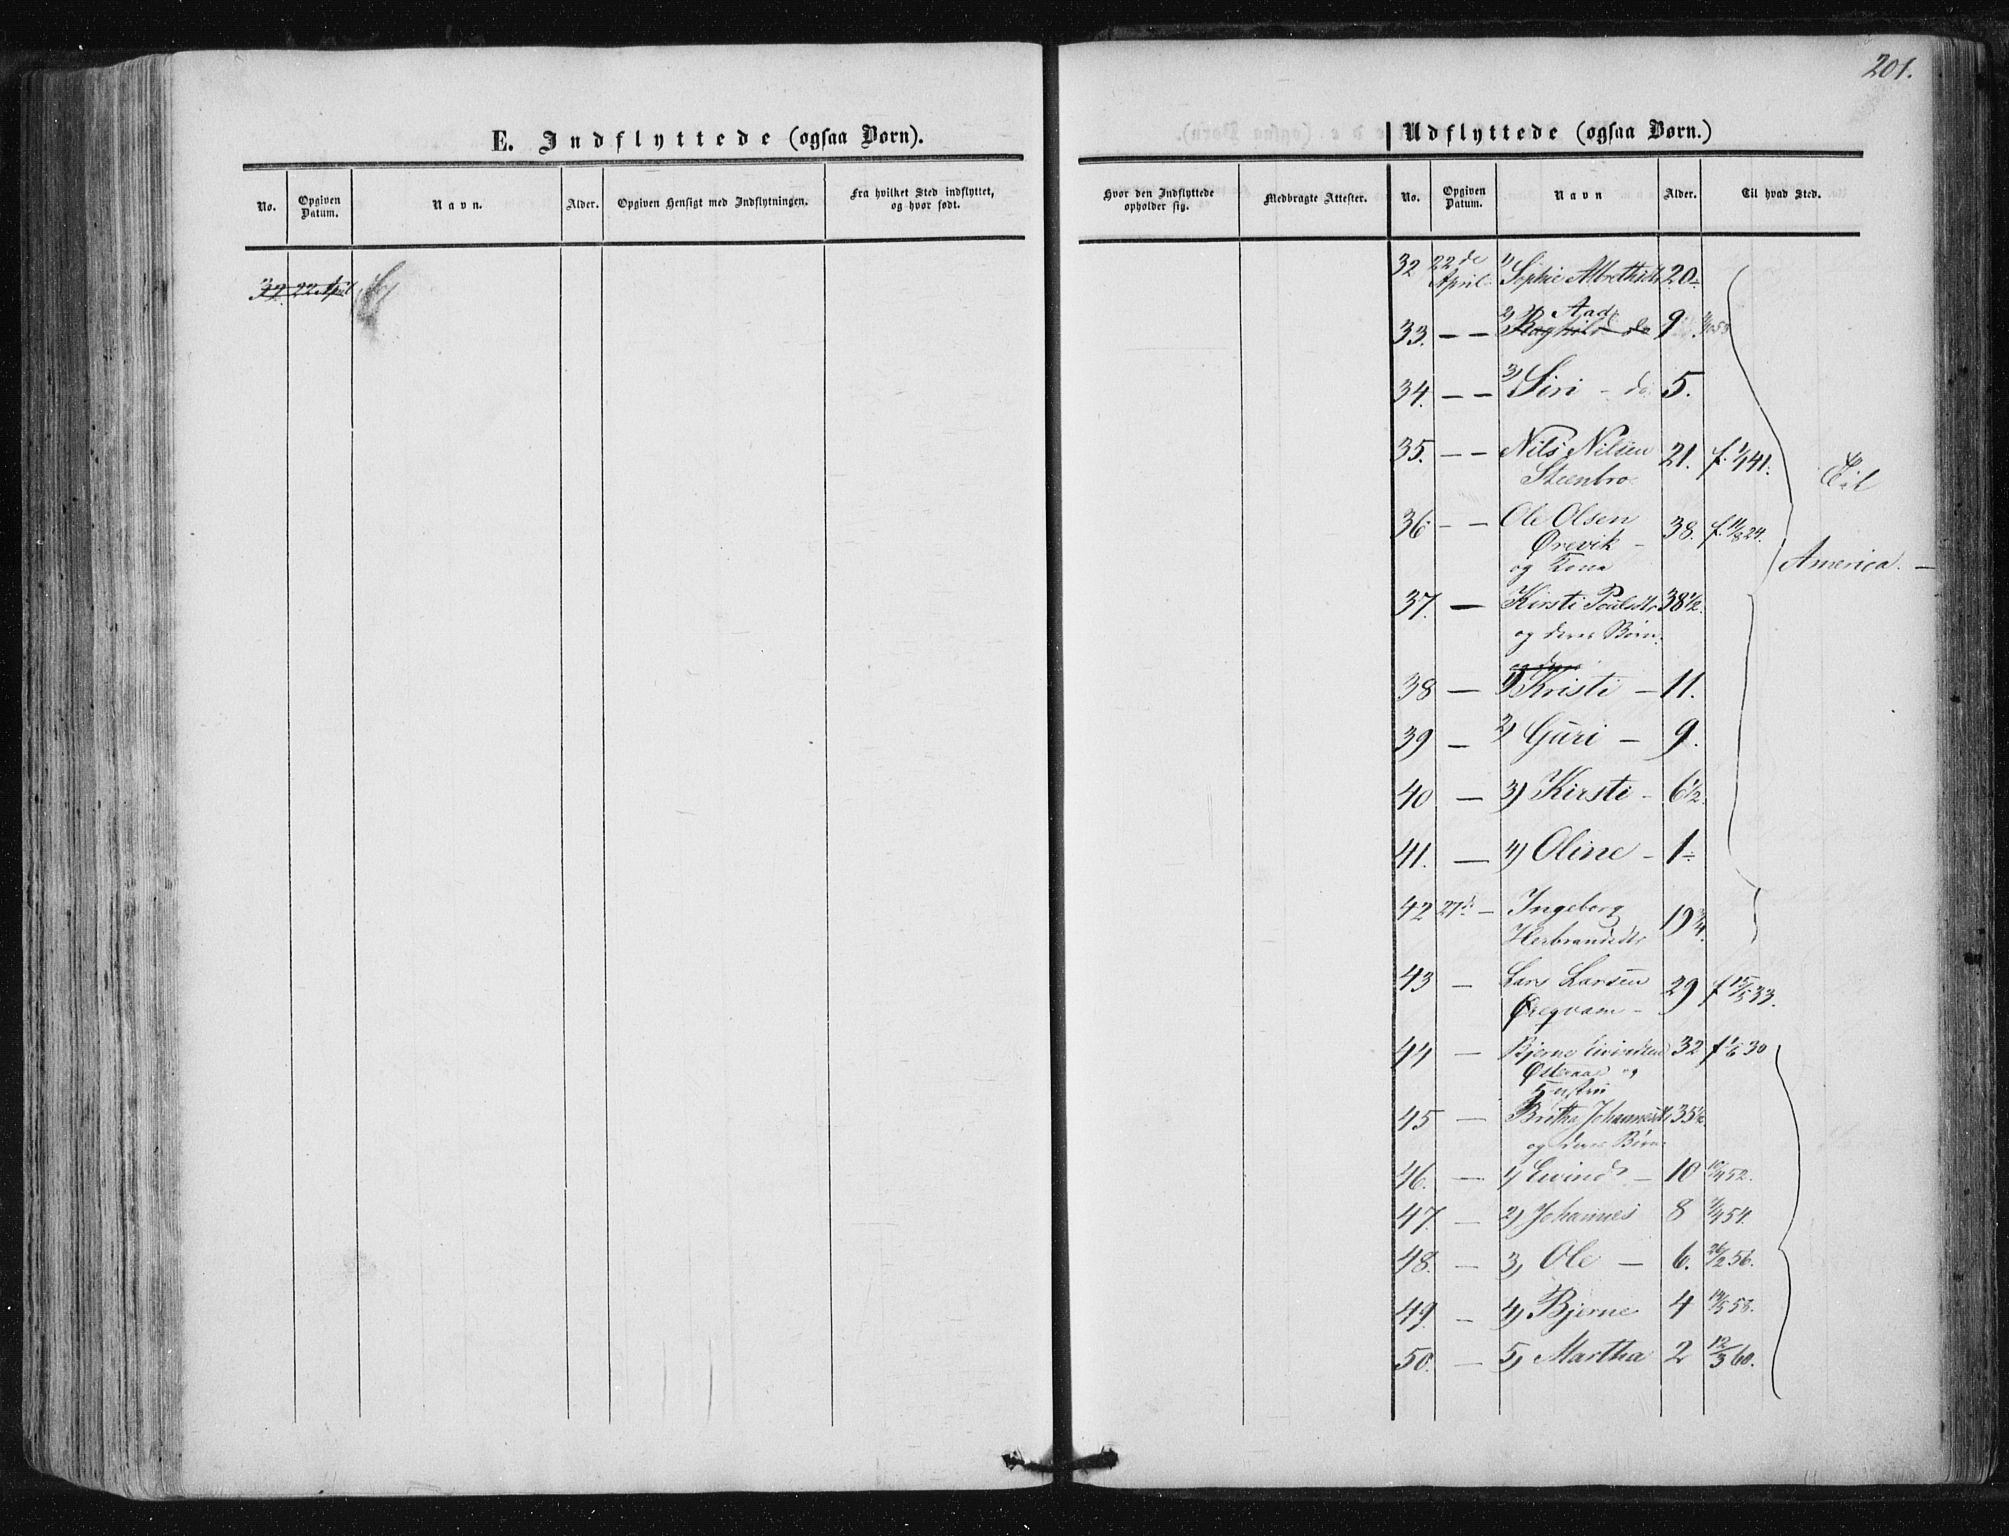 201.
E. Indflyttede (ogsaa Børn).
Udflyttede (ogsaa Børn.)
No. Opgiven Datum. Navn. Alder. Opgiven Hensigt med Indflytningen. Fra hvilket Sted indflyttet, og hvor født.
Hvor den Indflyttede opholder sig. Medbragte Attester. No. Opgiven Datum. Navn Alder. Til hvad Sted.
32. 22 April
32 22de April 1) Sophie Albrethsdtr 20
33. — — 2) Aad 9
34. — — 3) Siri - do 5.
35. — — Nils Nilsen 21. f. 1/1 41.
Steenbro
Til
36. — — Ole Olsen 38. f. 11/8 24.
Ørevik —
og Kona
America. —
37. — Kirsti Poulsdtr 38½
og deres Børn.
38 — 1) Kristi — 11.
39 — 2) Guri — 9.
40 — 3) Kirsti - 6½
41. — 4) Oline - 1
42 27d — Ingeborg 19¾
Herbrandsdtr
43 — Lars Larsen 29 f 15/5 33.
Øregvam —
44 — Bjerne Eivindsen 32 f 1/6 30
og
Hustru
45 — Britha Johannesdtr 35½
og deres Børn
46. — 1) Eivind — 10 10/4 52.
47. — 2) Johannes 8 7/4 54.
48. — 3) Ole — 6. 26/2 56.
49. — 4) Bjerne 4 14/5 58.
50. — 5) Martha 2 12/3 60.